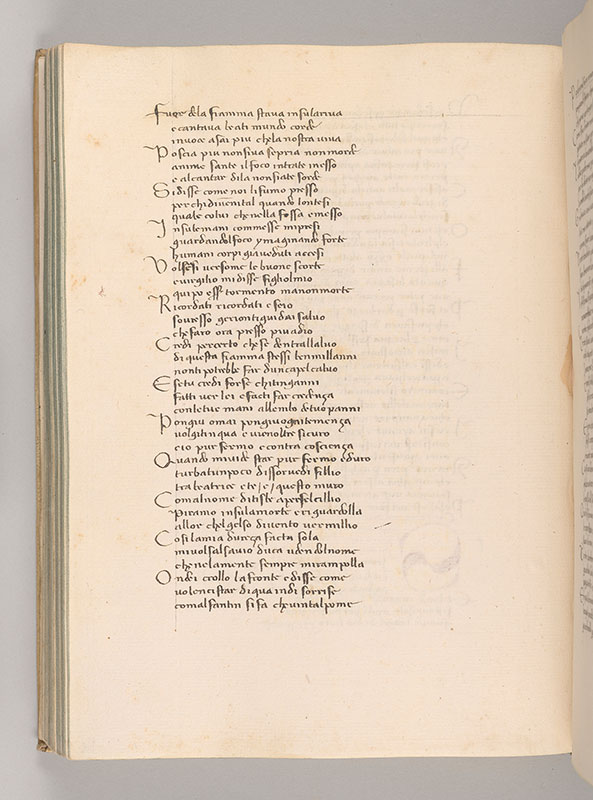 Fuor dela fiamma stava insulariva
e cantava beati mundo corde
invoce asai piu chela nostra viva
Poscia piu nonsiva sepria non morde
anime sante il foco intrate inesso
e alcantar dila nonsiate sorde
Sidisse come noi li fumo presso
per chi divenital quando lontesi
quale colui che nella fossa e messo
Insulemani commesse mipresi
guardandolfoco ymaginando forte
humani corpi gia veduti accesi
Volsersi versome le buone scorte
e virgilio midisse figliolmio
qui po esser tormento manonmorte
Ricordati ricordati e seio
sovresso gerionti guidai salvo
chefaro ora presso piu adio
Credi percerto chese dentrallalvo
di questa fiamma stessi ben millanni
nonti potrebbe far duncapel calvo
Esetu credi forse chitinganni
fatti ver lei e fatti far credenza
conletue mani allembo detuo panni
Pongiu omai pongiu ogni temenza
volgiti inqua e vieni oltre sicuro
e io pur fermo e contra coscienza
Quando mi vide star pur fermo e duro
turbatunpoco disse orvedi fillio
tra beatrice e te / e / questo muro
Comalnome di tisbe aperselcillio
Piramo insulamorte e riguardolla
allor chelgelso divento vermillio
Cosilamia dureza facta solla
mivolsalsavio duca udendolnome
chenelamente sempre mirampolla
Ondei crollo la fronte e disse come
volenci star diqua indi sorrise
comalfantin sifa chevintalpome